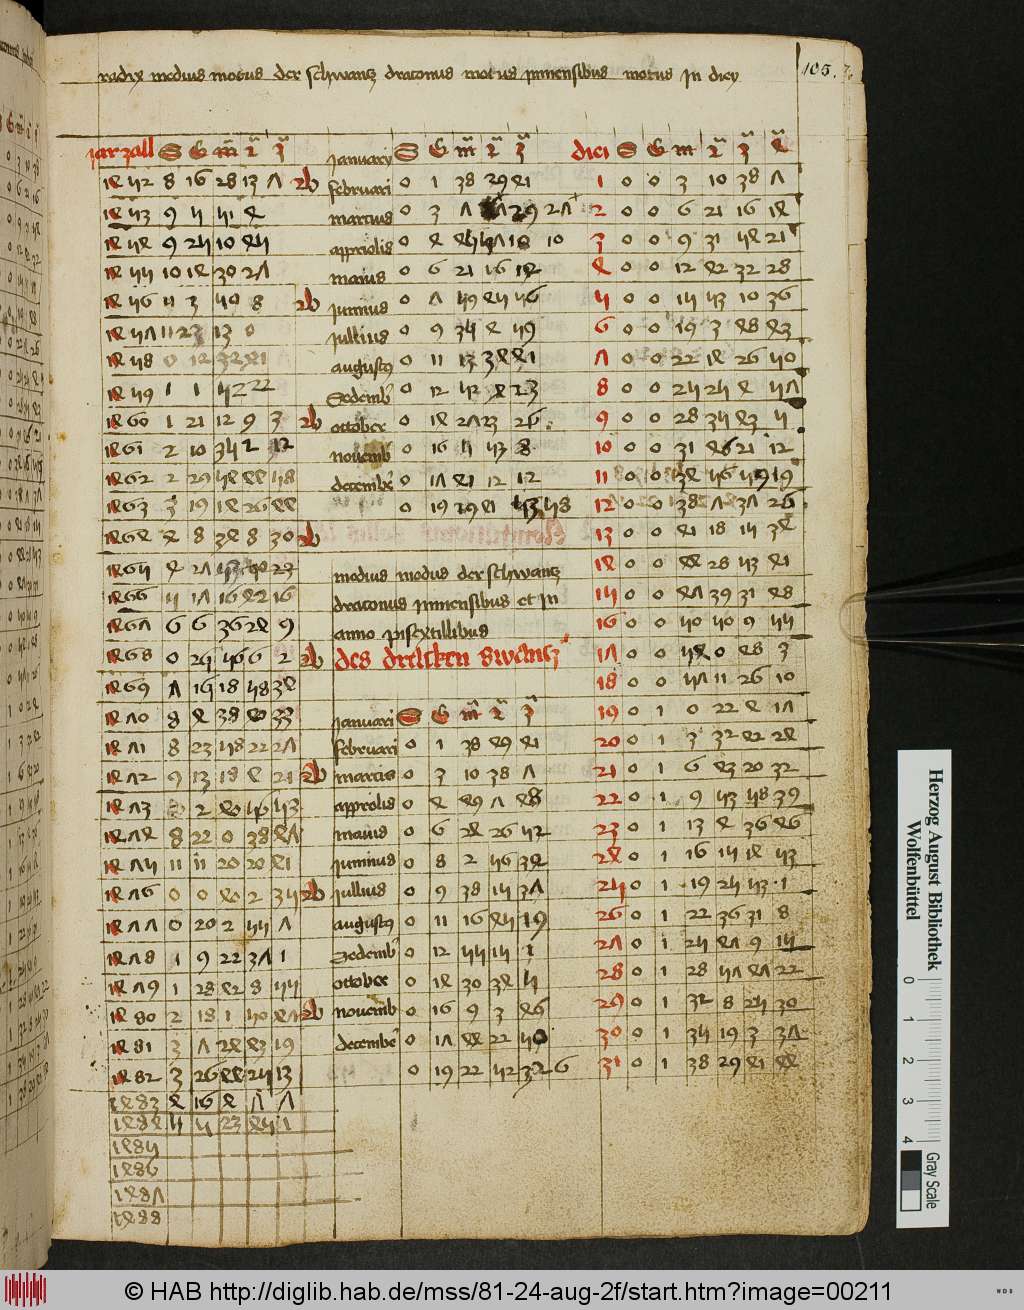 radix medius motus der schwantz draconus motus inmensibus motus in diey
105.
jarzall S G m̄ 2 3
1452 8 16 28 13 7 2b
1453 9 5 51 4
1454 9 25 10 45
1455 10 14 30 27
1456 11 3 50 8 2b
1457 11 23 13 0
1458 0 12 32 41
1459 1 1 52 22
1460 1 21 12 9 3 2b
1461 2 10 35 2 12
1462 2 29 54 44 58
1463 3 19 14 26 44
1464 4 8 34 8 30 2b
1465 4 27 53 50 23
1466 5 17 16 42 16
1467 6 6 36 24 9
1468 0 25 56 6 2 2b
1469 7 15 18 58 34
1470 8 4 38 40 33
1471 8 23 58 22 27
1472 9 13 18 4 21 2b
1473 2 40 56 53
1474 8 22 0 38 47
1475 11 11 20 20 41
1476 0 0 40 2 35 2b
1477 0 20 2 55 7
1478 1 9 22 37 1
1479 1 28 42 8 55
1480 2 18 1 50 47 2b
1481 3 7 24 43 19
1482 3 26 44 25 13
1483 4 16 4 7 7
1484 5 5 23 45 1
1485
1486
1487
1488
january S G m̄ 2 3
februari 0 1 38 29 41
marcius 0 3 7 29 27
apprelis 0 4 18 10
maius 0 6 21 16 14
junius 0 7 59 45 56
jullius 0 9 35 4 59
augustus 0 11 13 34 41
Sedemb 0 12 52 4 23
ottober 0 14 27 23 26
novemb 0 16 5 53 8
decembe 0 17 41 12 12
0 19 29 41 53 58
medius modus der schwantz
draconus inmensibus et in
anno pisextillibus
des drelcken swantz
januari S G m̄ 2 3
februari 0 1 38 29 41
marcius 0 3 10 38 7
apprelis 0 4 49 7 48
maius 0 6 24 26 52
junius 0 8 2 56 34
jullius 0 9 38 15 37
augustus 0 11 16 45 19
Sedemb 0 12 55 15 1
ottober 0 14 30 34 5
novemb 0 16 9 3 46
decembe 0 17 44 22 50
0 19 22 52 32 6
diei S G m 2 3 4
1 0 0 3 10 38 7
2 0 0 6 21 16 14
3 0 0 9 31 54 21
4 0 0 12 42 32 28
5 0 0 15 53 10 36
6 0 0 19 3 48 43
7 0 0 22 14 26 50
8 0 0 25 25 4 57
9 0 0 28 35 43 5
10 0 0 31 46 21 12
11 0 0 34 56 59 19
12 0 0 38 7 37 26
13 0 0 41 18 15 34
14 0 0 44 28 53 41
15 0 0 47 39 31 48
16 0 0 50 50 9 55
17 0 0 54 0 48 3
18 0 0 57 11 26 10
19 0 1 0 22 4 17
20 0 1 3 32 42 24
21 0 1 6 43 20 32
22 0 1 9 53 58 39
23 0 1 13 4 36 46
24 0 1 16 15 14 53
25 0 1 19 25 53 1
26 0 1 22 36 31 8
27 0 1 25 47 9 15
28 0 1 28 57 47 22
29 0 1 32 8 25 30
30 0 1 35 19 3 37
31 0 1 38 29 41 44
Herzog August Bibliothek
Wolfenbüttel
0 1 2 3 4
Gray Scale
© HAB http://diglib.hab.de/mss/81-24-aug-2f/start.htm?image=00211